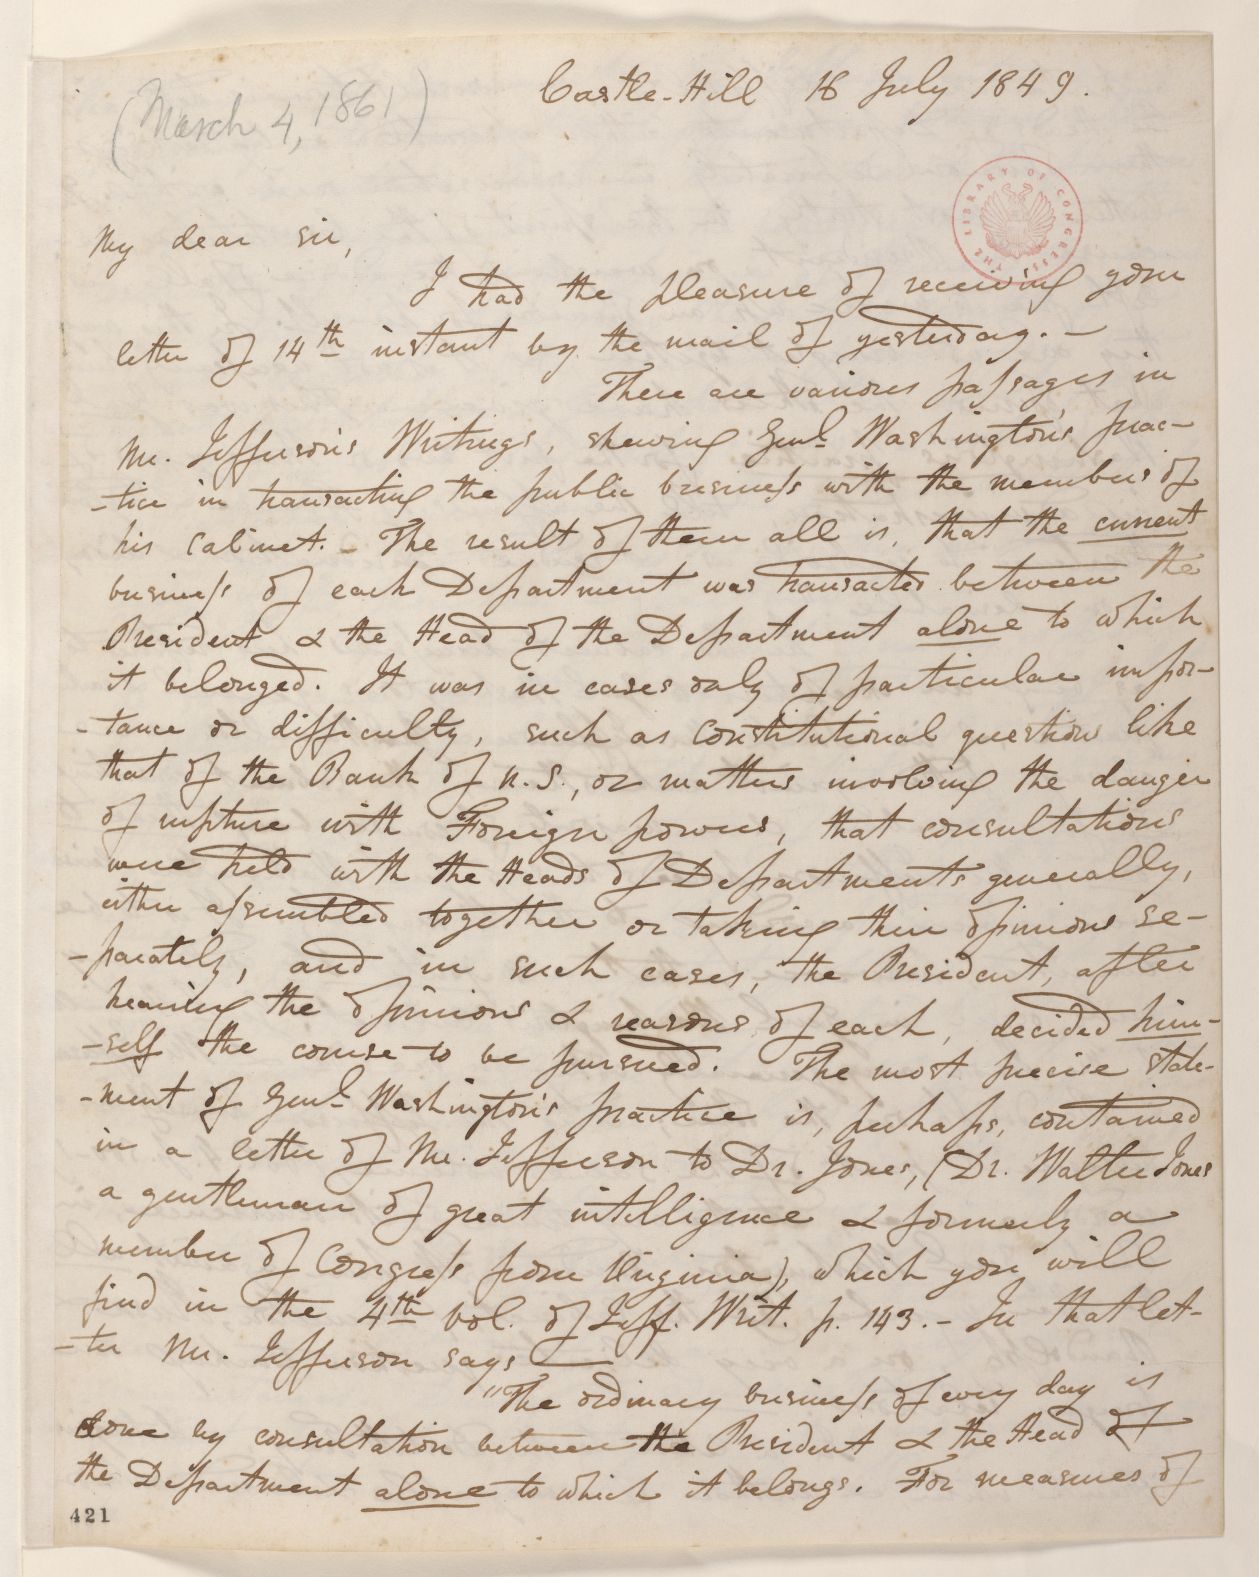 (March 4, 1861)
Castle-Hill 18 July 1849.
THE LIBRARY OF CONGRESS
My dear sir,
I had the pleasure of receiving your
letter of 14th instant by the mail of yesterday. —
There are various passages in
Mr. Jefferson's Writings, shewing Genl. Washington's prac-
-tice in transacting the public business with the members of
his cabinet. – The result of them all is, that the current
business of each Department was transacted between the
President & the Head of the Department alone to which
it belonged. It was in cases only of particular impor-
-tance or difficulty, such as constitutional questions like
that of the Bank of U.S., or matters involving the danger
of rupture with Foreign powers, that consultations
were held with the Heads of Departments generally,
either assembled together or taking their opinions se-
-parately, and in such cases, the President, after
hearing the opinions & reasons of each, decided him-
-self the course to be pursued. The most precise state-
-ment of Genl. Washington's practice is, perhaps, contained
in a letter of Mr. Jefferson to Dr. Jones, (Dr. Walter Jones
a gentleman of great intelligence & formerly a
member of Congress from Virginia), which you will
find in the 4th vol. of Jeff. Writ. p. 143. – In that let-
-ter Mr. Jefferson says —
"The ordinary business of every day is
done by consultation between the President & the Head of
the Department alone to which it belongs. For measures of
421